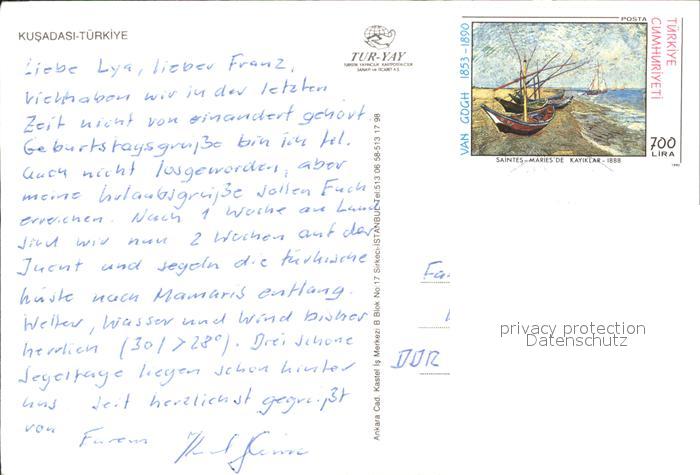 KUŞADASI-TÜRKİYE
TUR-YAY
TURİSTİK YAYINCILIK KARTPOSTALCILIK
SANAYİ ve TİCARET A.Ş.
Liebe Lya, lieber Franz,
vielhaben wir in der letzten
Zeit nicht von einandert gehört.
Geburtstagsgrüße bin ich tel.
auch nicht losgeworden, aber
meine Urlaubsgrüße sollen Euch
erreichen. Nach 1 Woche an Land
sind wir nun 2 Wochen auf der
Jacht und segeln die türkische
Küste nach Mamaris entlang.
Wetter, Wasser und Wind bisher
herrlich (30/>28°). Drei schöne
Segeltage liegen schon hinter
uns seid herzlichst gegrüßt
von Eurem
Ankara Cad. Kastel İş Merkezi B Blok No:17 Sirkeci-İSTANBUL Tel:513 06 58-513 17 98
VAN GOGH 1853-1890
POSTA
TÜRKİYE
CUMHURİYETİ
700
LİRA
SAINTES-MARIES'DE KAYIKLAR-1888
1990
DDR
privacy protection
Datenschutz